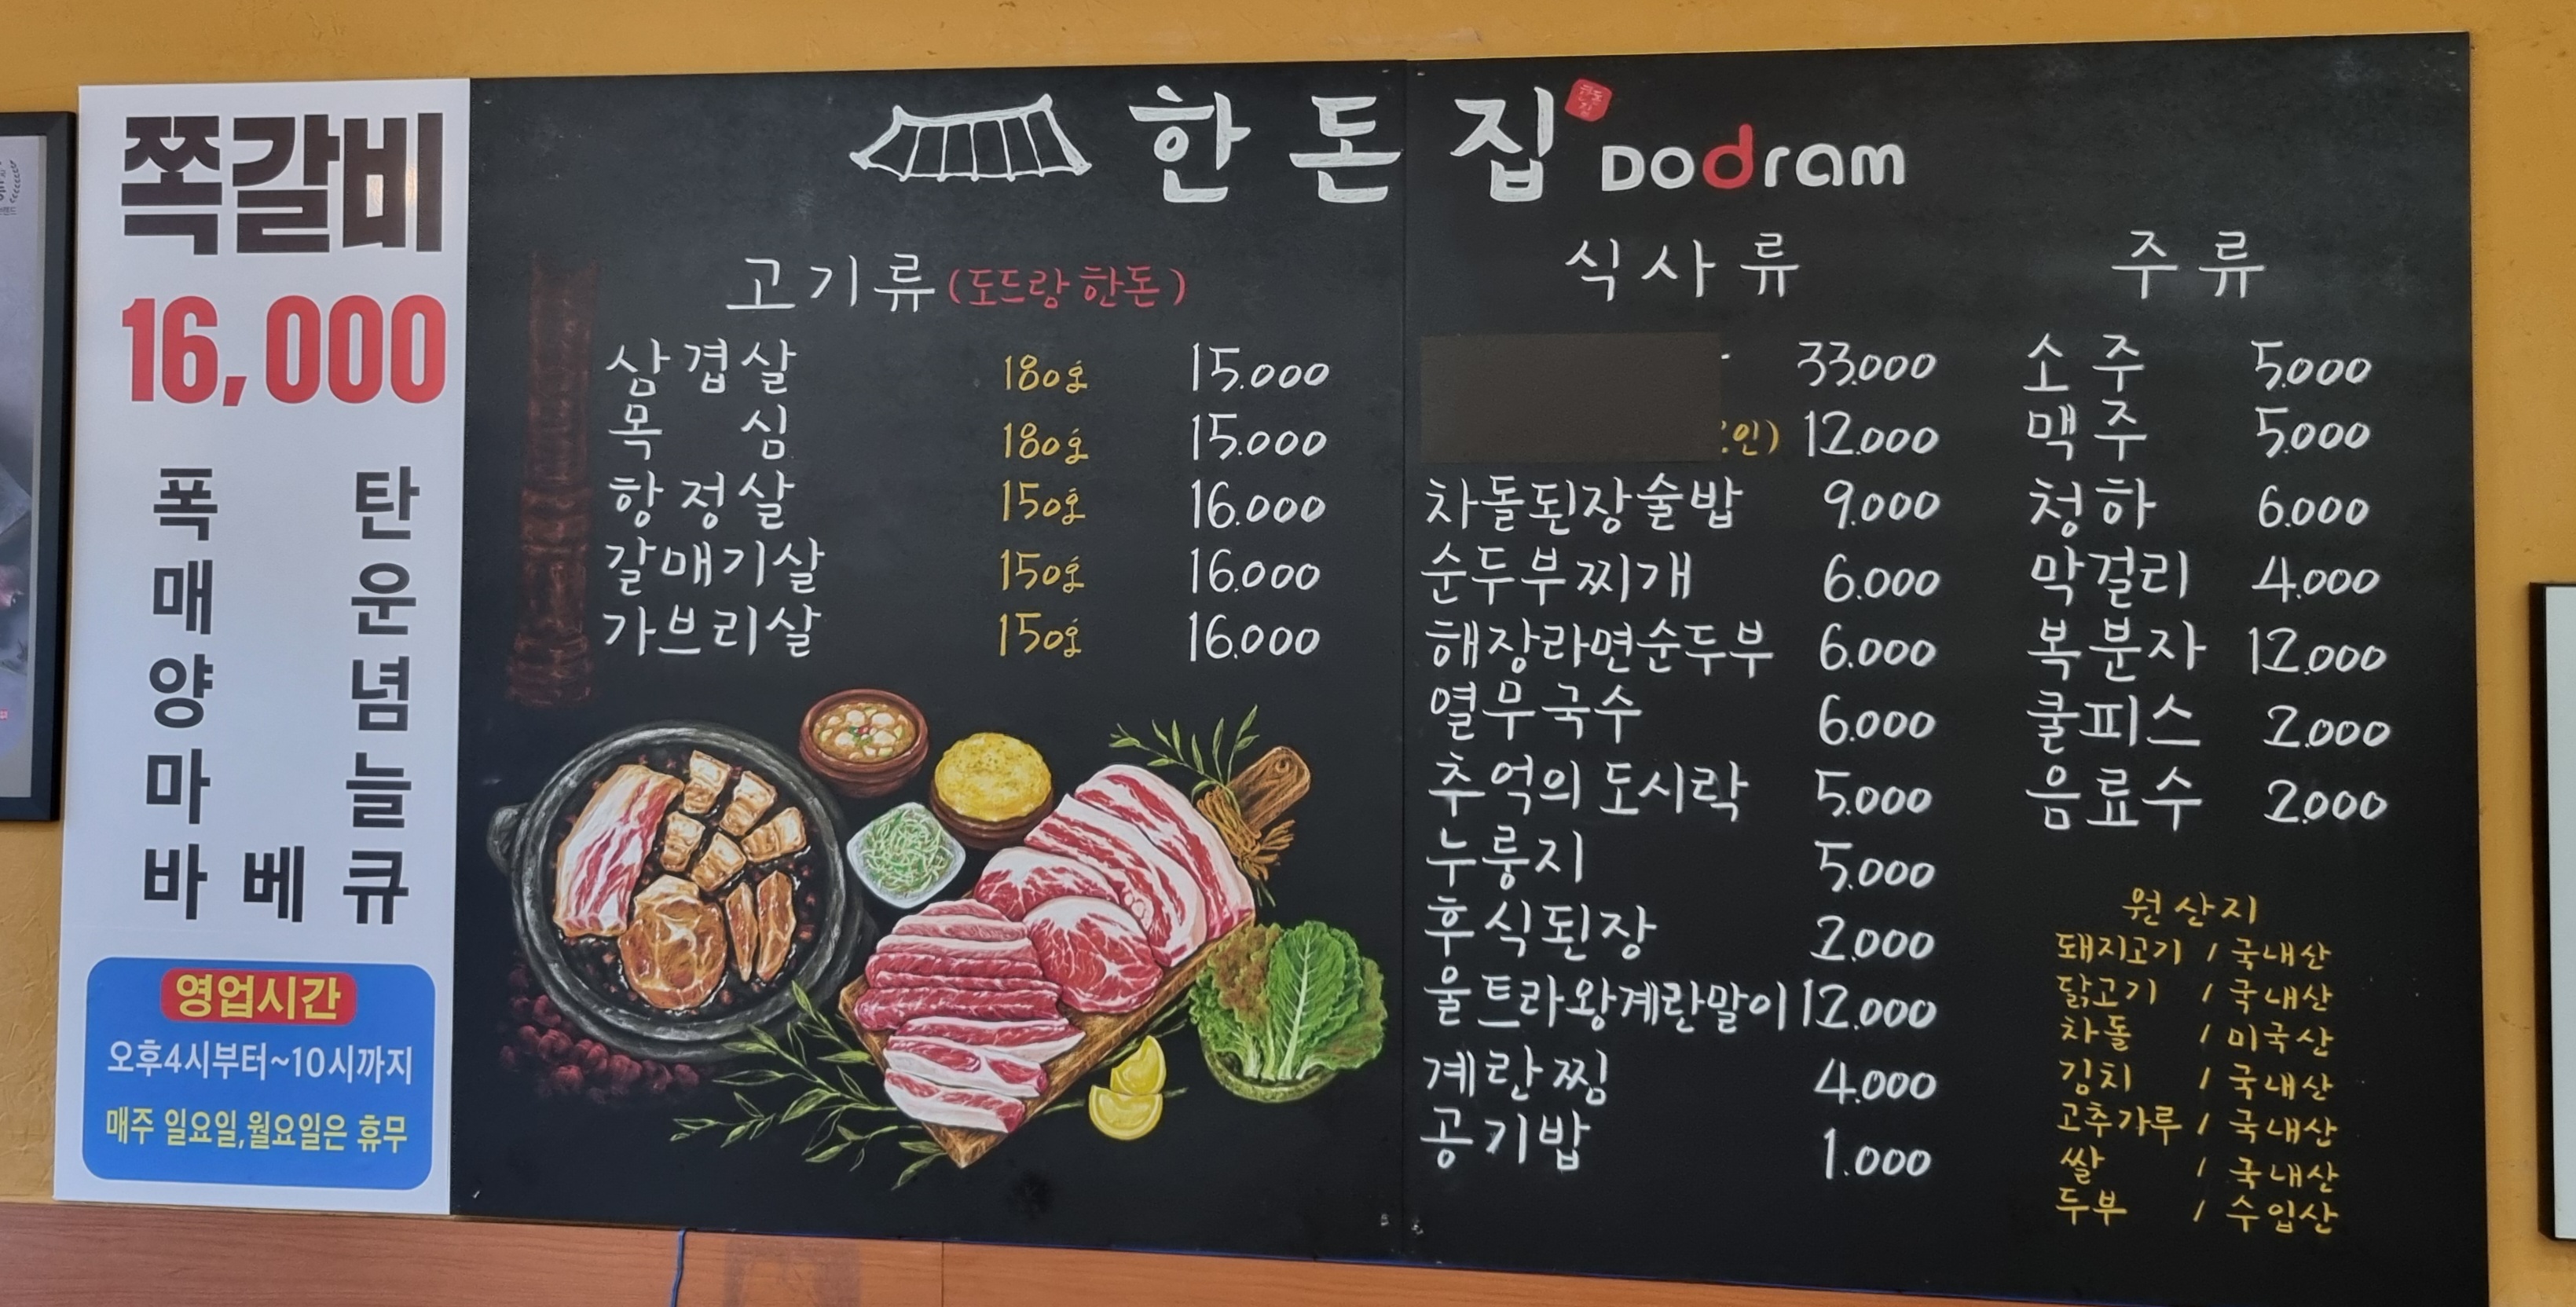 쪽갈비
16,000
폭탄
매운
양념
마늘
바베큐
영업시간
오후4시부터~10시까지
매주 일요일,월요일은 휴무
한돈집 Dodram
고기류 (도드람한돈)
삼겹살 180g 15.000
목심 180g 15.000
항정살 150g 16.000
갈매기살 150g 16.000
가브리살 150g 16.000
식사류
33.000
12.000
차돌된장술밥 9.000
순두부찌개 6.000
해장라면순두부 6.000
열무국수 6.000
추억의 도시락 5.000
누룽지 5.000
후식된장 2.000
울트라왕계란말이 12.000
계란찜 4.000
공기밥 1.000
주류
소주 5.000
맥주 5.000
청하 6.000
막걸리 4.000
복분자 12.000
쿨피스 2.000
음료수 2.000
원산지
돼지고기 / 국내산
닭고기 / 국내산
차돌 / 미국산
김치 / 국내산
고추가루 / 국내산
쌀 / 국내산
두부 / 수입산